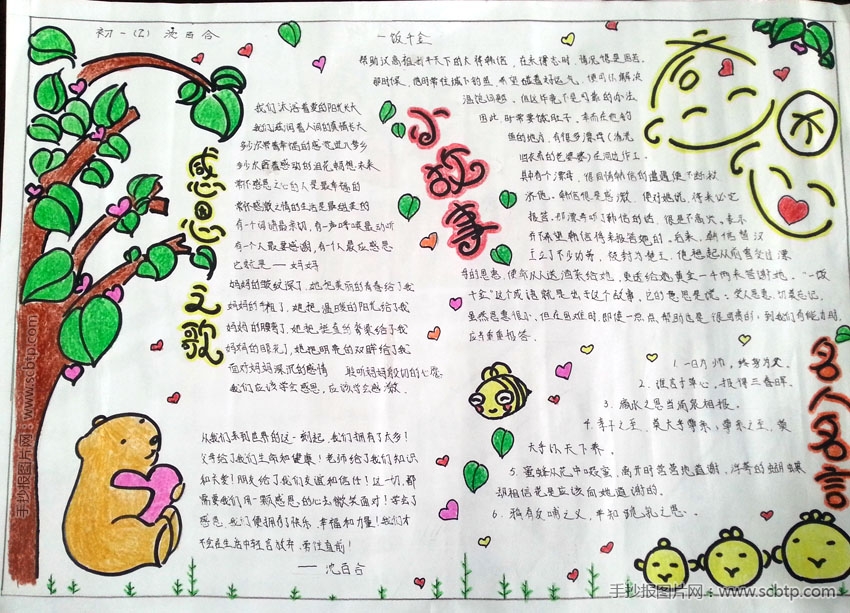 初一(2) 沈百合
感恩之歌
我们沐浴着爱的阳光长大
我们滋润着人间的真情长大
多少次带着幸福的感觉进入梦乡
多少次面着感动的泪花畅想未来
常怀感恩之心的人是最幸福的
常怀感激之情的生活是最甜美的
有一个词语最亲切,有一声呼唤最动听
有一个人最要感谢,有一个人最应感恩
她就是——妈妈
妈妈的皱纹深了,她把美丽的青春给了我
妈妈的手粗了,她把温暖的阳光给了我
妈妈的腰弯了,她把挺直的脊梁给了我
妈妈的眼花了,她把明亮的双眸给了我
面对妈妈深沉的感情
我们应该学会感恩,应该学会感激.
从我们来到世界的这一刻起,我们拥有了太多!
父母给了我们生命和健康!老师给了我们知识
和关爱!朋友给了我们友谊和信任!这一切,都
需要我们用一颗感恩的心去微笑面对!学会了
感恩,我们便拥有了快乐、幸福和力量!我们才
不会在生活中轻言放弃,勇往直前!
——沈百合
小故事
一饭千金
帮助汉高祖打平天下的大将韩信,在未得志时,情况很是困苦.
那时候,他时常往城下钓鱼,希望碰着好运气,便可以解决
温饱问题.但这毕竟不是可靠的办法
因此时常要饿肚子,幸而在他钓
鱼的地方,有很多漂母(清洗
旧衣布的老婆婆)在河边作工.
其中有个漂母,很同情韩信的遭遇便不断救
济他.韩信很是感激,便对她说,将来必定
报答.那漂母听了韩信的话,很是不高兴,表示
并不希望韩信将来报答她的.后来,韩信替汉
王立了不少功劳,被封为楚王,他想起从前曾受过漂
母的恩惠,便命从人送酒菜给她,更送给她黄金一千两来答谢她。"一饭
千金"这个成语就是出于这个故事,它的意思是说:受人恩惠,切莫忘记,
虽然恩惠很小,但在困难时,即使一点点帮助也是很可贵的;到我们有能力时,
应当重重报答.
名人名言
1.一日为师,终身为父.
2.谁言寸草心,报得三春晖.
3.滴水之恩当涌泉相报。
4.孝子之至,莫大乎尊亲;尊亲之至,莫
大乎以天下养.
5.蜜蜂从花中啜蜜,离开时营营地道谢,浮夸的蝴蝶
却相信花是应该向他道谢的.
6.鸦有反哺之义,羊知跪乳之恩。
手抄报图片网:www.scbtp.com
手抄报图片网:www.scbtp.com